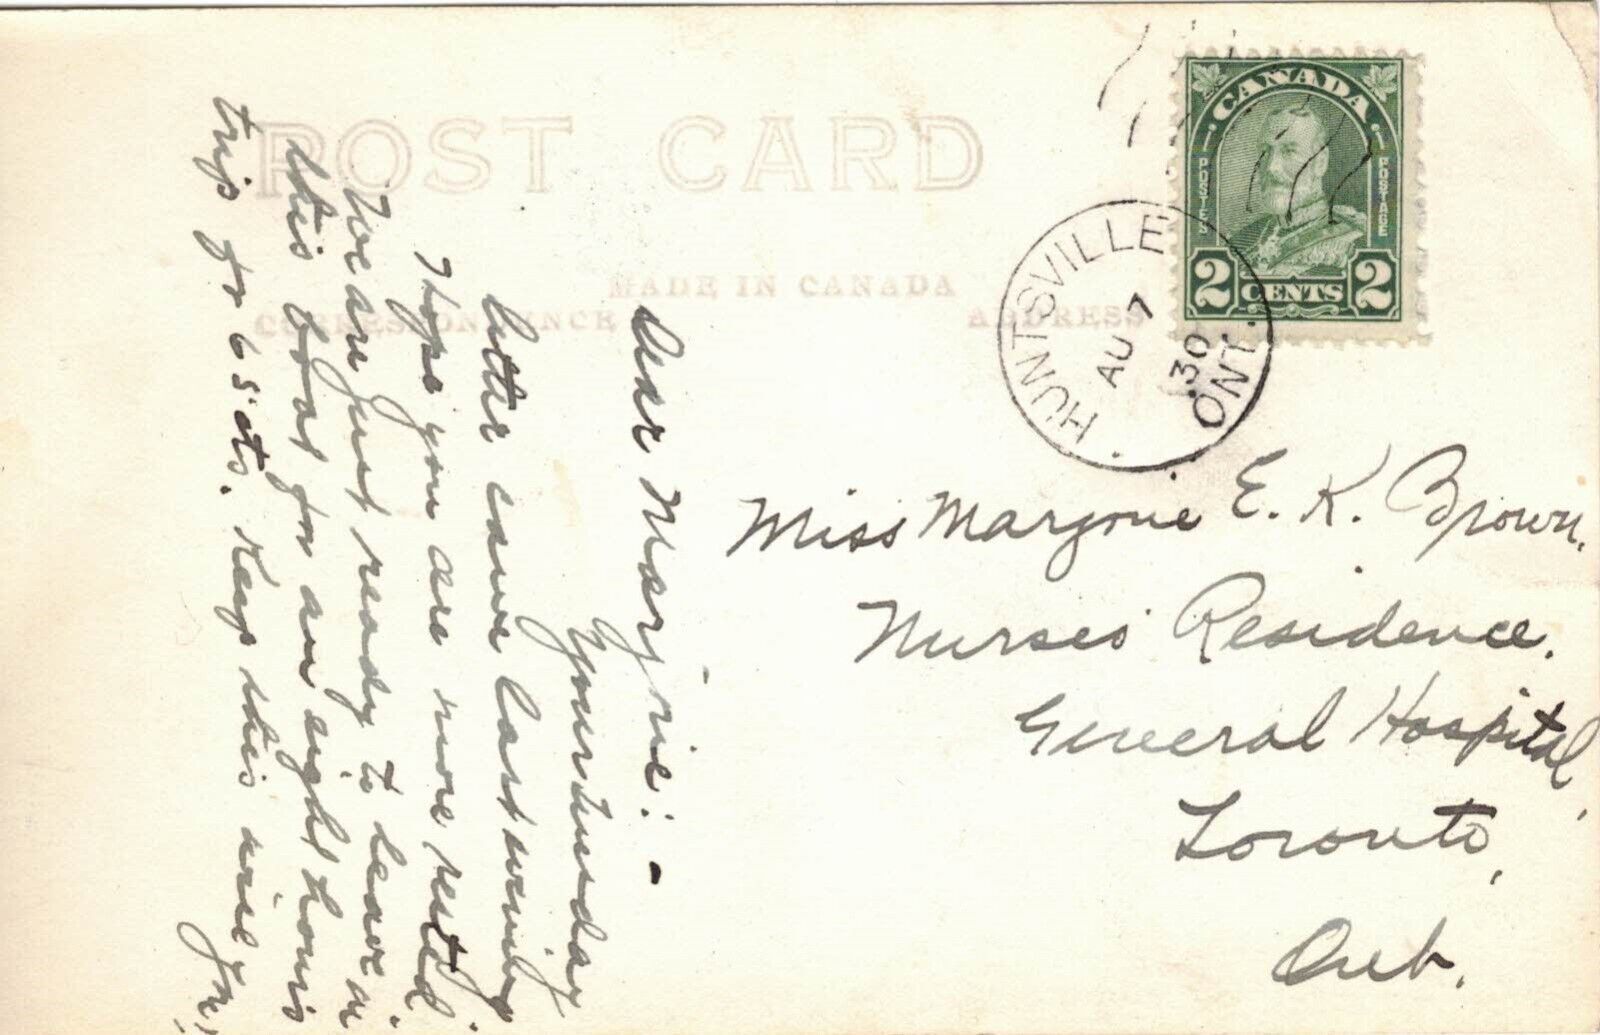 POST CARD
MADE IN CANADA
CORRESPONDENCE
ADDRESS
CANADA
POSTES
POSTAGE
2 CENTS 2
HUNTSVILLE
AU 7
30
ONT.
Dear Marjorie:-
Your Tuesday
letter came last evening
I hope you are more rested.
We are just ready to leave on
this boat for an eight hours
trip for 65 cts. Keep this
Miss Marjorie E. K. Brown,
Nurses Residence,
General Hospital,
Toronto,
Ont.